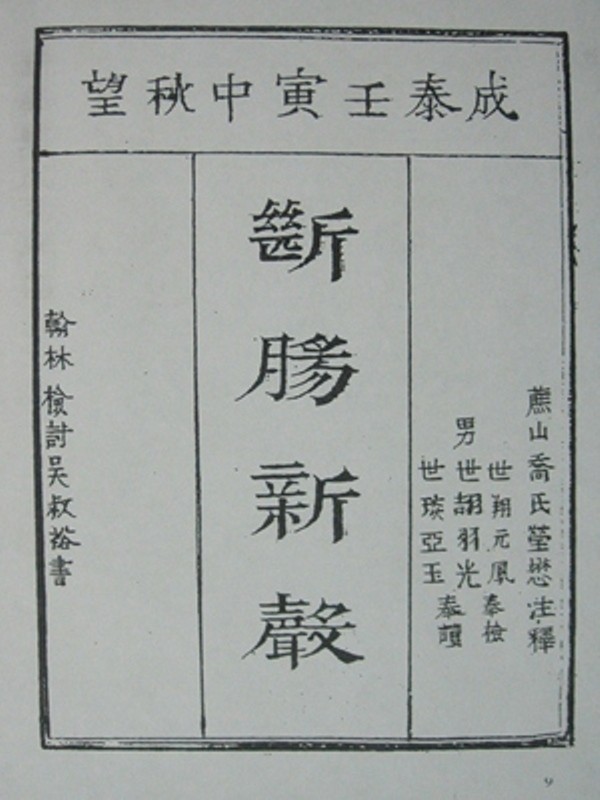 成泰壬寅中秋望
蔗山喬氏瑩懋注釋
世翔元鳳奉檢
男世詡羽光
世琰亞玉
奉讀
斷腸新聲
翰林檢討吳叔裕書
9